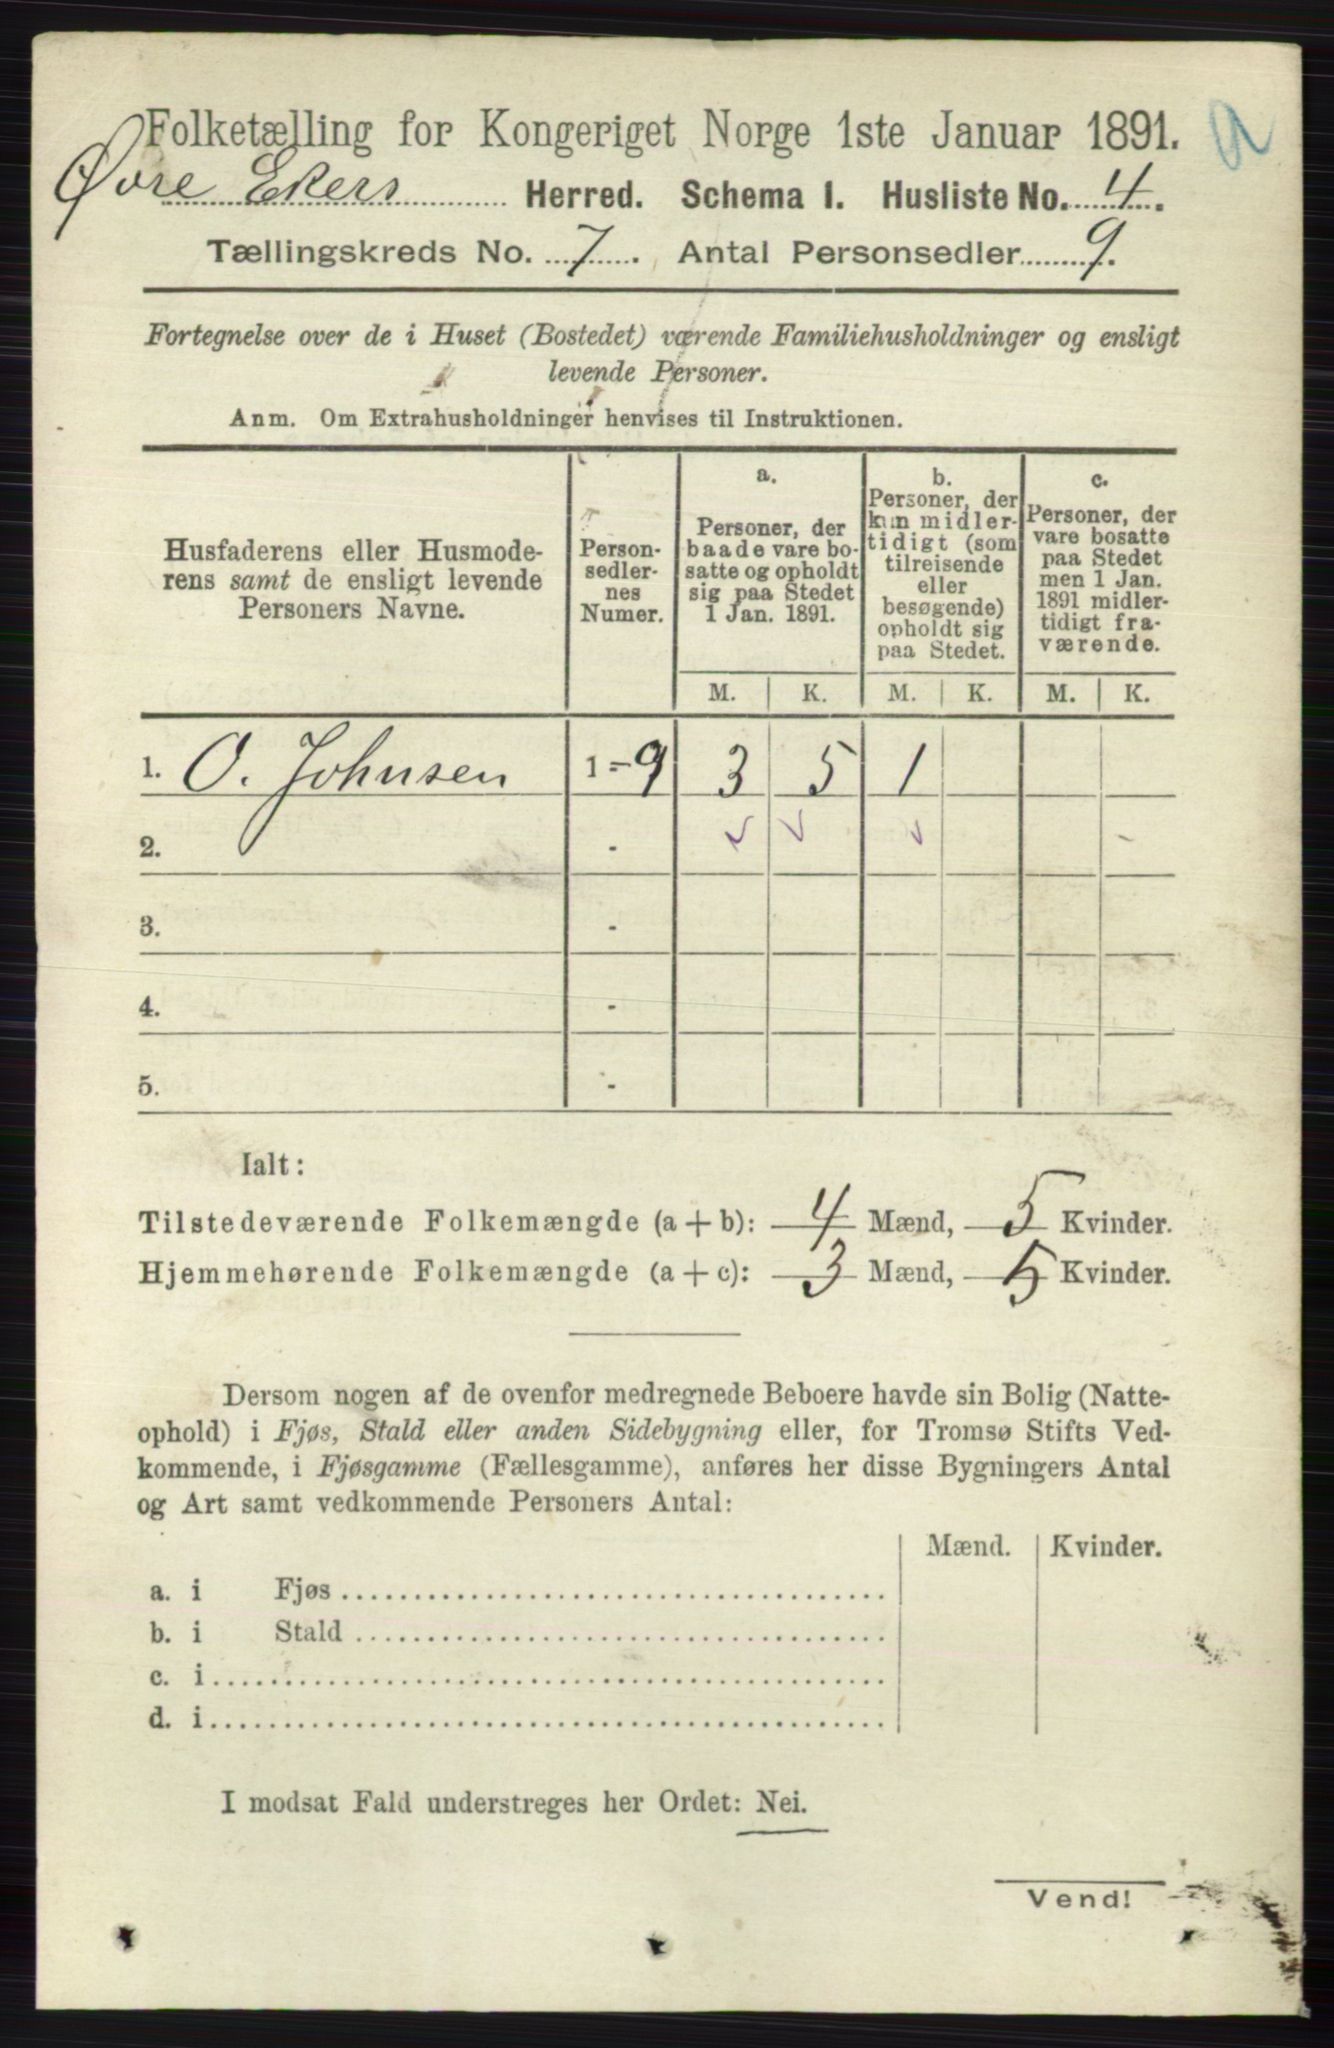 Folketælling for Kongeriget Norge 1ste Januar 1891.
Øvre Ekers Herred. Schema I. Husliste No. 4.
Tællingskreds No. 7. Antal Personsedler 9.
Fortegnelse over de i Huset (Bostedet) værende Familiehusholdninger og ensligt
levende Personer.
Anm. Om Extrahusholdninger henvises til Instruktionen.
Husfaderens eller Husmode-
rens samt de ensligt levende
Personers Navne.
Person-
sedler-
nes
Numer.
a.
Personer, der
baade vare bo-
satte og opholdt
sig paa Stedet
1 Jan. 1891.
b.
Personer, der
kun midler-
tidigt (som
tilreisende
eller
besøgende)
opholdt sig
paa Stedet.
c.
Personer, der
vare bosatte
paa Stedet
men 1 Jan.
1891 midler-
tidigt fra-
værende.
M. K. M. K. M. K.
1. O. Johnsen 1-9 3 5 1
2. -
3. -
4. -
5. -
Ialt:
Tilstedeværende Folkemængde (a + b): 4 Mænd, 5 Kvinder.
Hjemmehørende Folkemængde (a + c): 3 Mænd, 5 Kvinder.
Dersom nogen af de ovenfor medregnede Beboere havde sin Bolig (Natte-
ophold) i Fjøs, Stald eller anden Sidebygning eller, for Tromsø Stifts Ved-
kommende, i Fjøsgamme (Fællesgamme), anføres her disse Bygningers Antal
og Art samt vedkommende Personers Antal:
Mænd. Kvinder.
a. i Fjøs
b. i Stald
c. i
d. i
I modsat Fald understreges her Ordet: Nei.
Vend!